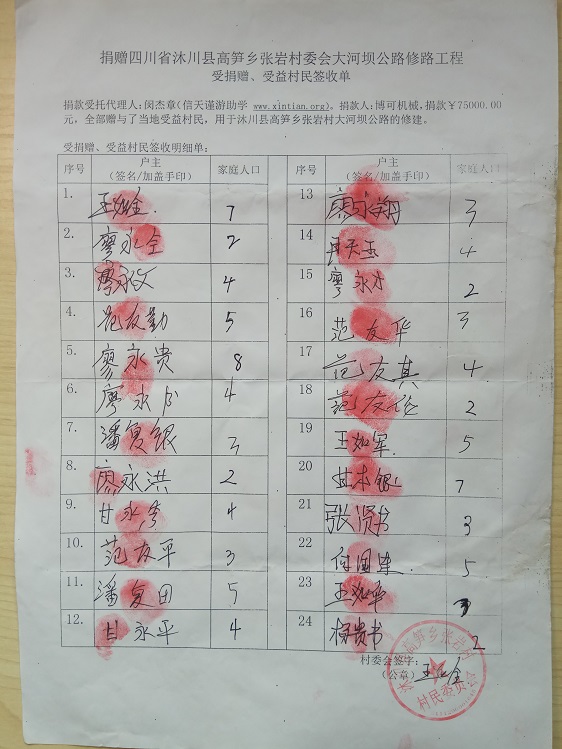 捐赠四川省沐川县高笋乡张岩村委会大河坝公路修路工程
受捐赠、受益村民签收单
捐款受托代理人：闵杰章（信天谨游助学 www.xintian.org）。捐款人：博可机械，捐款￥75000.00
元，全部赠与了当地受益村民，用于沐川县高笋乡张岩村大河坝公路的修建。
受捐赠、受益村民签收明细单：
序号 户主（签名/加盖手印） 家庭人口
1. 王如金 7
2. 廖永全 2
3. 廖永文 4
4. 范友勤 5
5. 廖永贵 8
6. 廖永 4
7. 潘复银 3
8. 廖永洪 2
9. 甘永 4
10. 范友平 3
11. 潘复田 5
12. 甘永平 4
序号 户主（签名/加盖手印） 家庭人口
13 廖永翔 3
14 天玉 4
15 廖永才 2
16 范友华 3
17 范友其 4
18 范友 2
19 王如军 5
20 甘本银 7
21 张贤书 3
22 付国 5
23 王如华 3
24 杨贵书 2
村委会签字：
（公章） 王如金
高笋乡张岩村
村民委员会